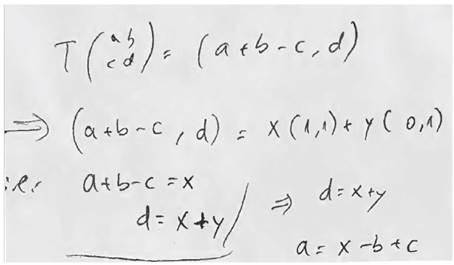 T(a b
c d) = (a+b-c, d)
⟹ (a+b-c, d) = x(1,1) + y(0,1)
i.e. a+b-c = x
d = x+y ⇒ d = x+y
a = x-b+c